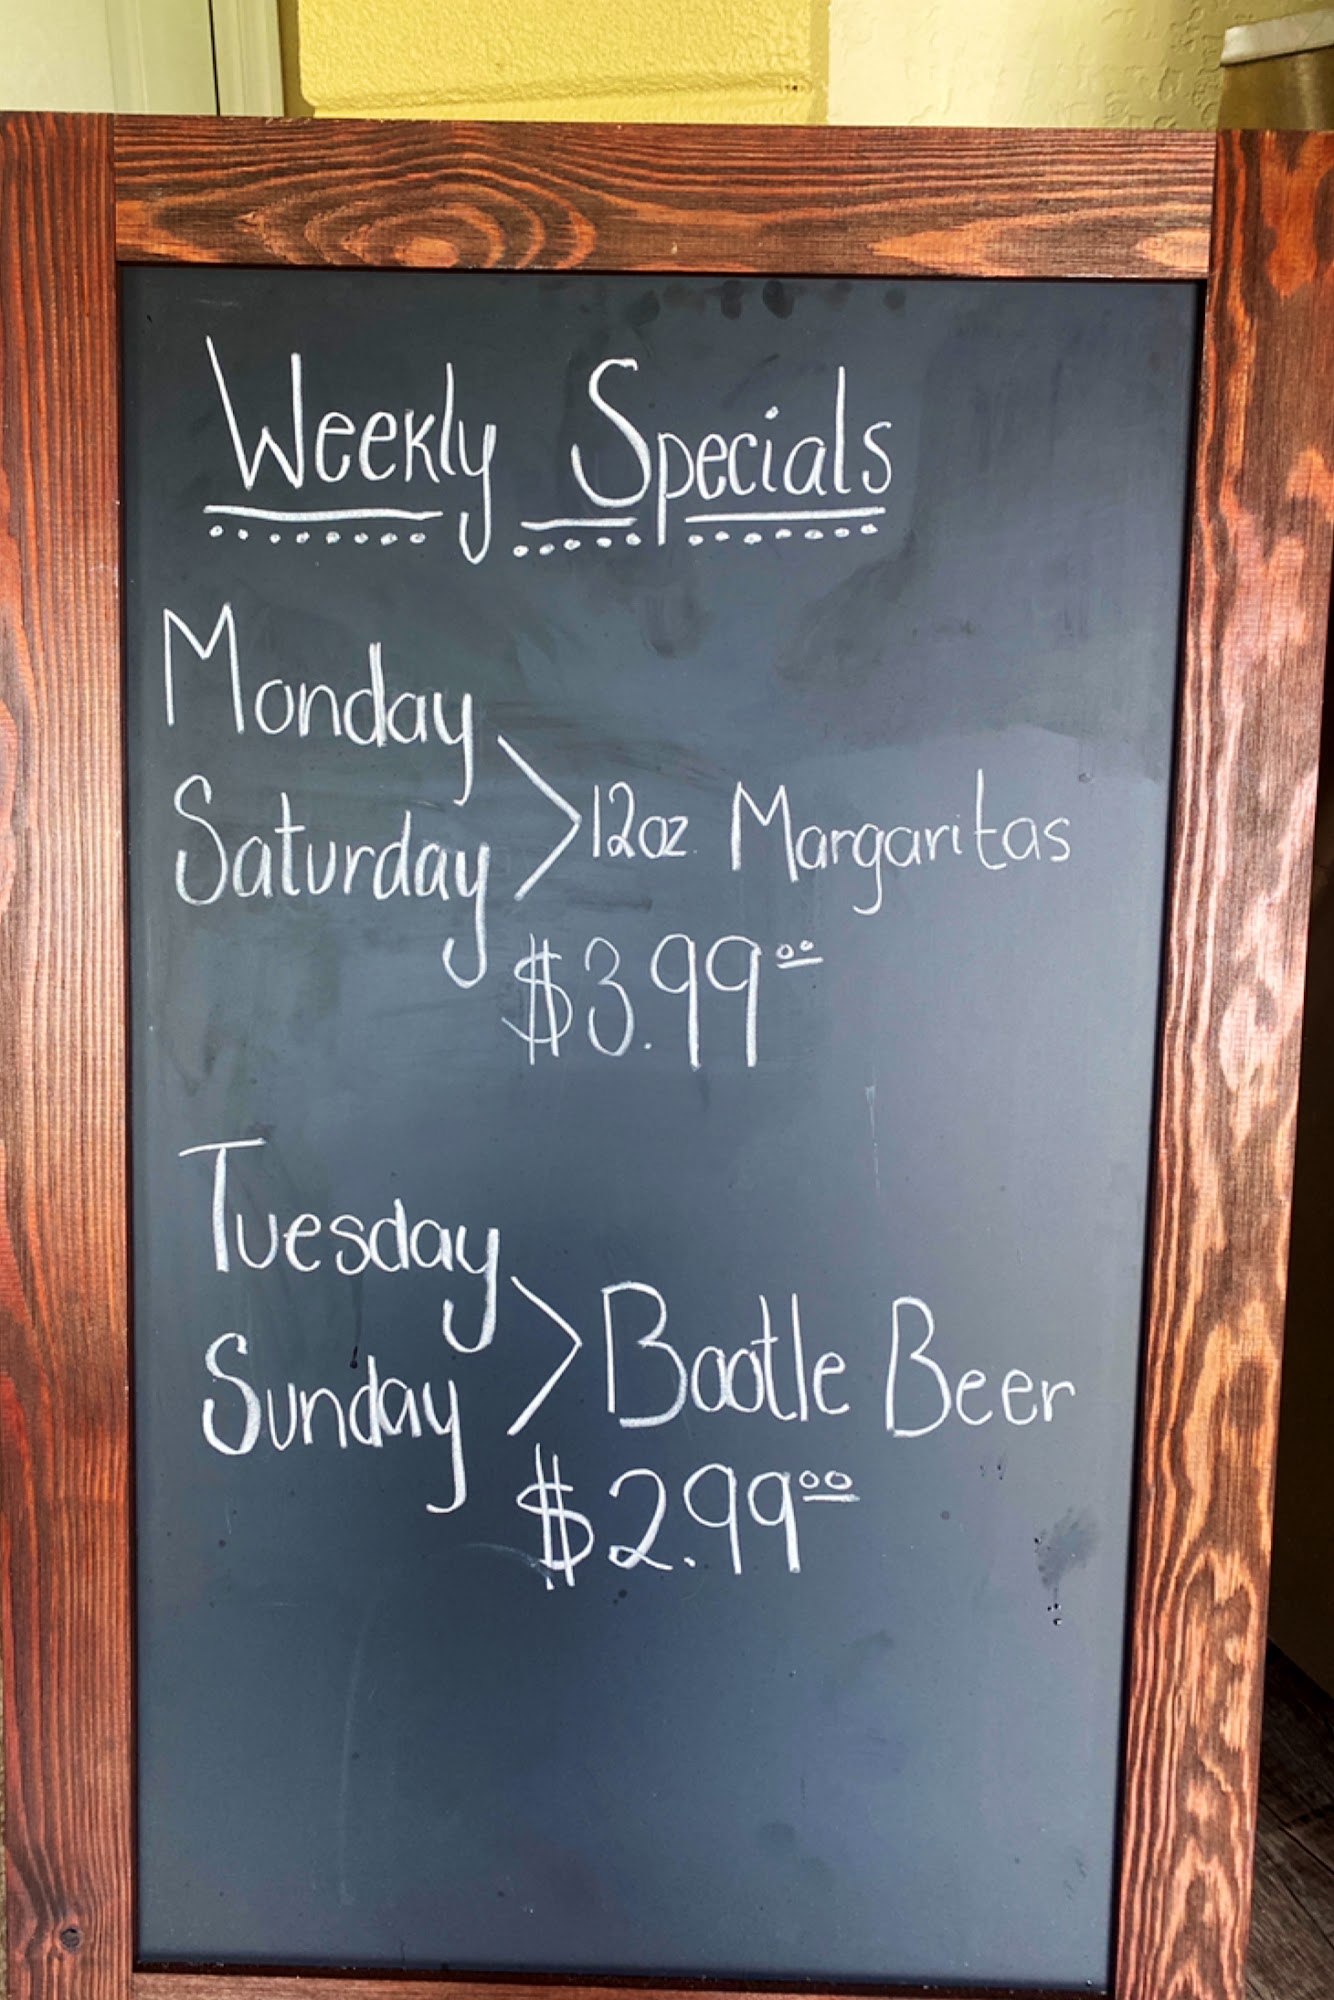 Weekly Specials
Monday
Saturday > 12oz. Margaritas
$3.99 00
Tuesday
Sunday > Bootle Beer
$2.99 00